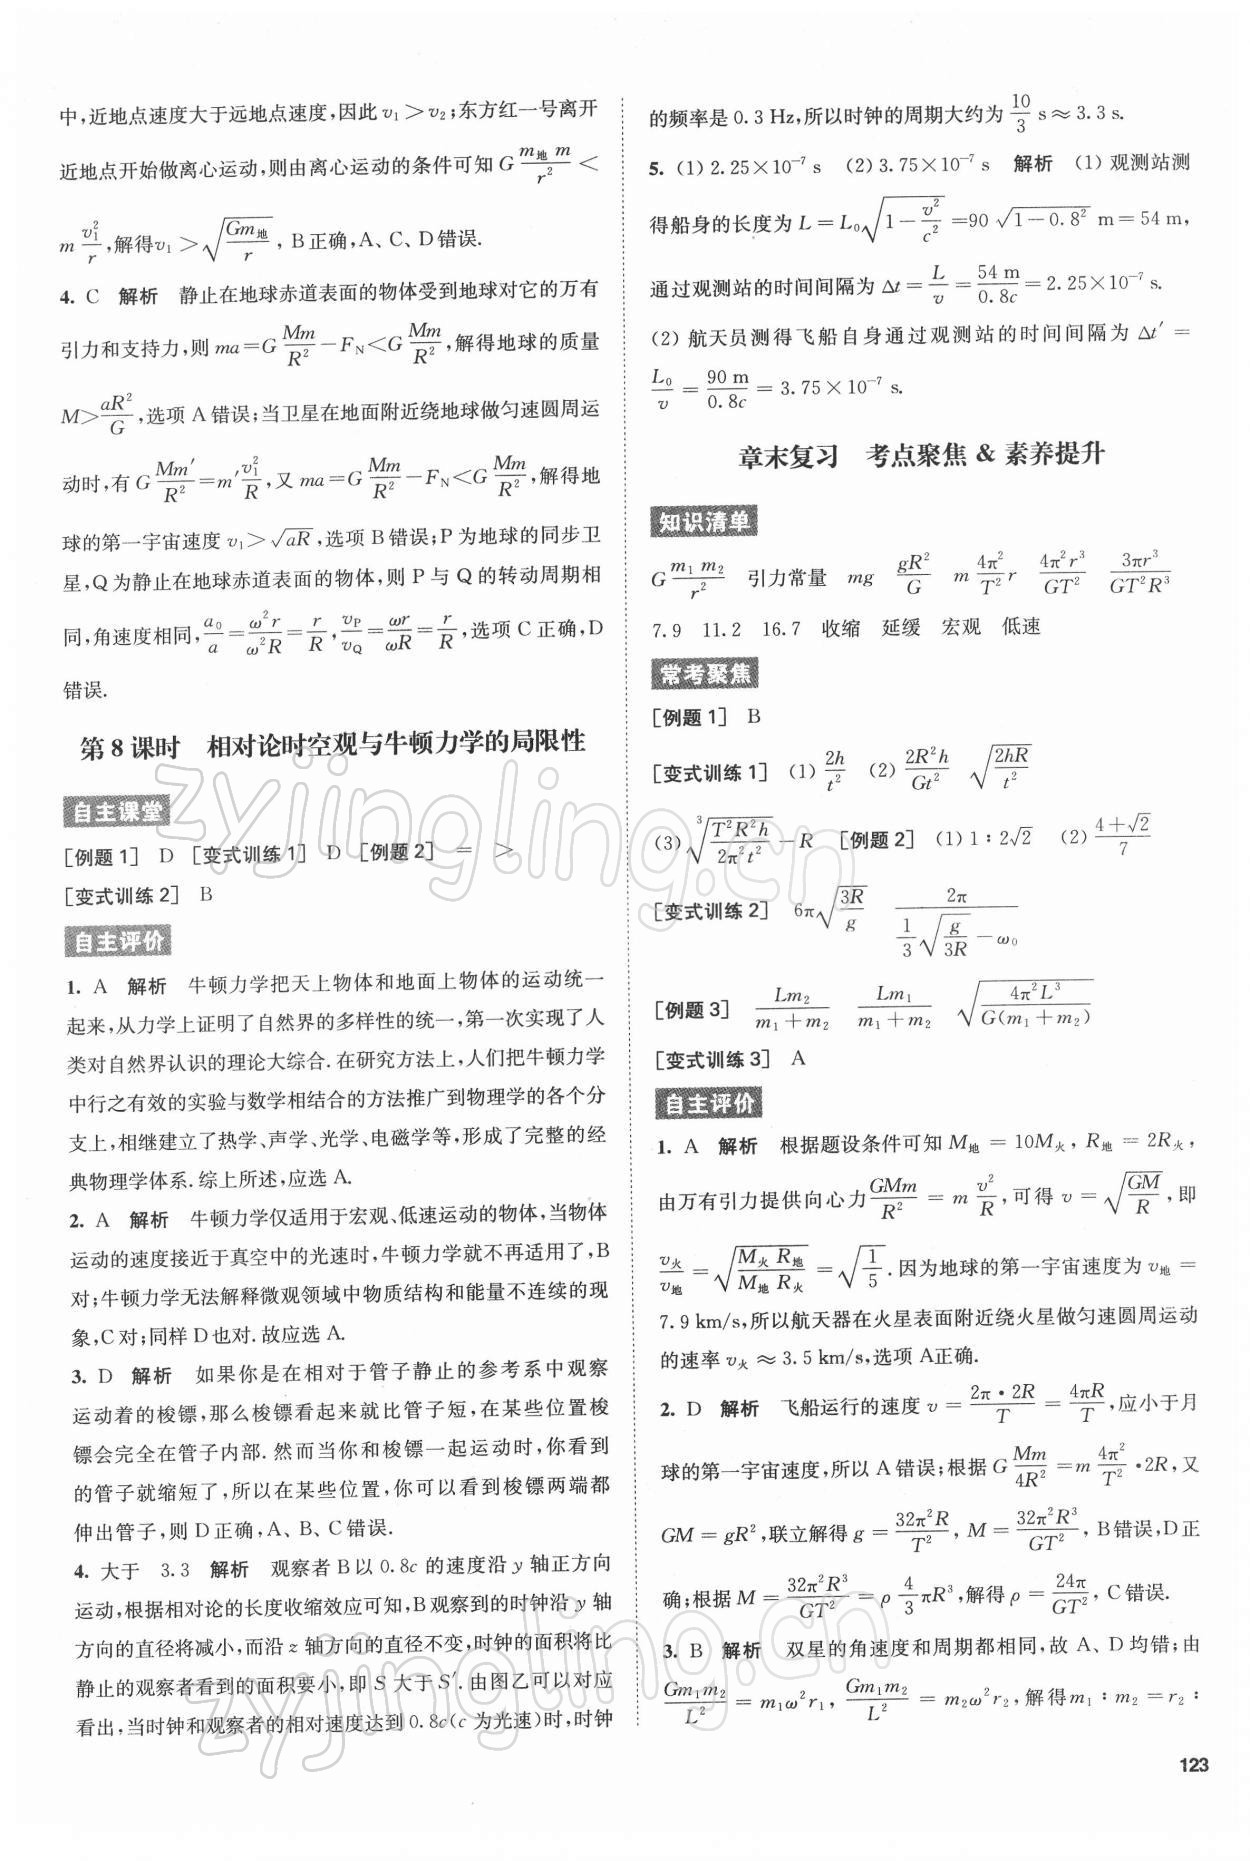 中,近地点速度大于远地点速度,因此 v₁>v₂;东方红一号离开
近地点开始做离心运动,则由离心运动的条件可知 G m地 m/r² <
m v₁²/r,解得v₁>√(Gm地/r), B正确,A、C、D错误.
4. C 解析 静止在地球赤道表面的物体受到地球对它的万有
引力和支持力,则 ma=G Mm/R² −F_N<G Mm/R²,解得地球的质量
M>aR²/G,选项 A 错误;当卫星在地面附近绕地球做匀速圆周运
动时,有 G Mm′/R²=m′v₁²/R,又 ma=G Mm/R² −F_N<G Mm/R²,解得地
球的第一宇宙速度 v₁>√(aR),选项 B错误;P为地球的同步卫
星,Q为静止在地球赤道表面的物体,则 P 与 Q 的转动周期相
同,角速度相同,a₀/a=ω²r/ω²R=r/R,v_P/v_Q=ωr/ωR=r/R,选项 C正确,D
错误.
第 8 课时 相对论时空观与牛顿力学的局限性
自主课堂
[例题1] D [变式训练1] D [例题2] = >
[变式训练2] B
自主评价
1. A 解析 牛顿力学把天上物体和地面上物体的运动统一
起来,从力学上证明了自然界的多样性的统一,第一次实现了人
类对自然界认识的理论大综合. 在研究方法上,人们把牛顿力学
中行之有效的实验与数学相结合的方法推广到物理学的各个分
支上,相继建立了热学、声学、光学、电磁学等,形成了完整的经
典物理学体系. 综上所述,应选 A.
2. A 解析 牛顿力学仅适用于宏观、低速运动的物体,当物体
运动的速度接近于真空中的光速时,牛顿力学就不再适用了,B
对;牛顿力学无法解释微观领域中物质结构和能量不连续的现
象,C对;同样 D也对. 故应选 A.
3. D 解析 如果你是在相对于管子静止的参考系中观察
运动着的梭镖,那么梭镖看起来就比管子短,在某些位置梭
镖会完全在管子内部. 然而当你和梭镖一起运动时,你看到
的管子就缩短了,所以在某些位置,你可以看到梭镖两端都
伸出管子,则 D正确,A、B、C错误.
4. 大于 3.3 解析 观察者 B以 0.8c 的速度沿 y 轴正方向
运动,根据相对论的长度收缩效应可知,B观察到的时钟沿 y 轴
方向的直径将减小,而沿 z 轴方向的直径不变,时钟的面积将比
静止的观察者看到的面积要小,即 S 大于 S′. 由图乙可以对应
看出,当时钟和观察者的相对速度达到0.8c(c 为光速)时,时钟
的频率是 0.3 Hz,所以时钟的周期大约为 10/3 s≈3.3 s.
5. (1) 2.25×10⁻⁷ s (2) 3.75×10⁻⁷ s 解析 (1) 观测站测
得船身的长度为 L=L₀√(1−v²/c²)=90 √(1−0.8²) m=54 m,
通过观测站的时间间隔为 Δt=L/v=54 m/0.8c=2.25×10⁻⁷ s.
(2) 航天员测得飞船自身通过观测站的时间间隔为 Δt′=
L₀/v=90 m/0.8c=3.75×10⁻⁷ s.
章末复习 考点聚焦 & 素养提升
知识清单
G m₁ m₂/r² 引力常量 mg gR²/G m 4π²/T² r 4π²r³/GT² 3πr³/GT²R³
7.9 11.2 16.7 收缩 延缓 宏观 低速
常考聚焦
[例题1] B
[变式训练1] (1) 2h/t² (2) 2R²h/Gt² √(2hR/t²)
(3) ³√(T²R²h/2π²t²)−R [例题2] (1) 1∶2√2 (2) (4+√2)/7
[变式训练2] 6π√(3R/g) 2π/((1/3)√(g/3R)−ω₀)
[例题3] Lm₂/(m₁+m₂) Lm₁/(m₁+m₂) √(4π²L³/G(m₁+m₂))
[变式训练3] A
自主评价
1. A 解析 根据题设条件可知 M地=10M火, R地=2R火,
由万有引力提供向心力 GMm/R²=m v²/R,可得 v=√(GM/R),即
v火/v地=√(M火 R地/M地 R火)=√(1/5). 因为地球的第一宇宙速度为 v地=
7.9 km/s,所以航天器在火星表面附近绕火星做匀速圆周运动
的速率 v火≈3.5 km/s,选项 A正确.
2. D 解析 飞船运行的速度 v=2π·2R/T=4πR/T,应小于月
球的第一宇宙速度,所以 A错误;根据 G Mm/4R²=m 4π²/T²·2R,又
GM=gR²,联立解得 g=32π²R/T², M=32π²R³/GT², B错误,D正
确;根据 M=32π²R³/GT²=ρ 4/3 πR³,解得 ρ=24π/GT², C错误.
3. B 解析 双星的角速度和周期都相同,故 A、D 均错;由
Gm₁m₂/L²=m₁ω²r₁, Gm₁m₂/L²=m₂ω²r₂,解得m₁∶m₂=r₂∶
123
zyjingling.cn
zyjingling.cn